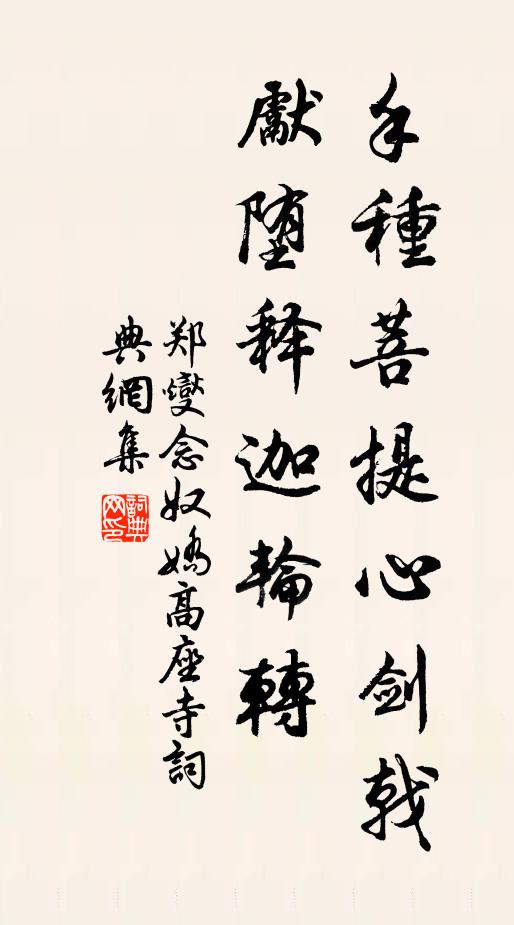 手種菩提心劍戟
獻墮釋迦輪轉
郑燮念奴嬌高座寺詞
典網集
詞典网印